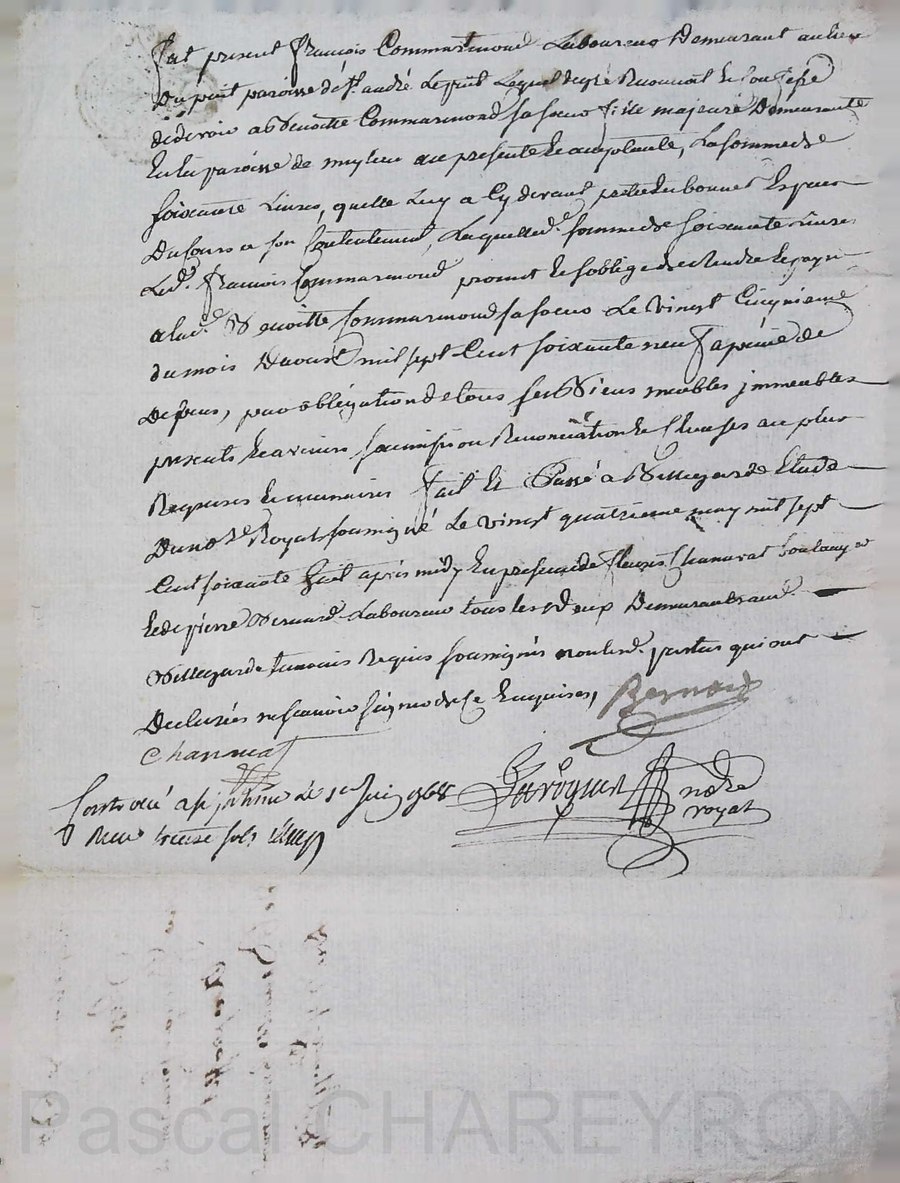 fut present François Commarmond Laboureur Demeurant au lieu
Du puit paroisse de st. andré Le puit Lequel degré Reconnoit Et Confesse
de devoir a Benoitte Commarmond sa soeur fille majeure Demeurante
En la paroisse de mizieu ace presente Et acceptante, La somme de
soixante Livres, quelle Luy a Cy devant pretée En bonnes Especes
Du Cours a son Contentement, Laquelle d.e somme de soixante Livres
Led. François Commarmond promet Et soblige de rendre Et payer
a lad.e Benoitte Commarmond sa soeur Le vingt Cinquieme
du mois Daoust mil sept Cent soixante neuf apeine de
Depens, par obligation de tous ses Biens meubles immeubles
presents Et avenirs soumission Renonciation Et Clauses au plus
Requises Et necessaires fait Et Passé a Bellegarde Etude
Du no.re Royal soussigné Le vingt quatrieme may mil sept
Cent soixante huit après midy En presence de fleury Chanavat
Et de pierre Bernard Laboureur tous Les Deux Demeurants aud.
Bellegarde temoins Requis soussignés non Lesd. parties qui ont
Declarées ne scavoir signer de ce Enquises, Bernard
Chanavat
Controlé a le 1er Juin 1768 no.re
Receu treize sols royal
Pascal CHAREYRON